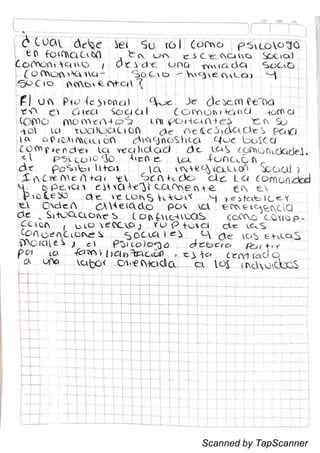 ¿ Cual debe ser su rol como psicologo
en formación en un escenario social
comunitario, desde una mirada socio
comunitaria - Socio - higienica, y
socio Ambiental?
El un profesional que se desempeña
en el area social comunitaria toma
como momentos importantes en su
rol la evaluación de necesidades para
la aproximación diagnostica que busca
comprender la realidad de las comunidades.
el psicologo tiene la función
de posibilitar la integración social,
Incrementar el sentido de la comunidad
y operar estrategicamente en el
proceso de reconstituir y restablecer
el orden alterado por la emergencia
de situaciones conflictivas como corrup-
cción, violencia, ruptura de las
convenciones sociales y de las eticas
morales, el psicologo debera partir
por la familiarización, esto centrado
a una labor orientada a los individuos
Scanned by TapScanner